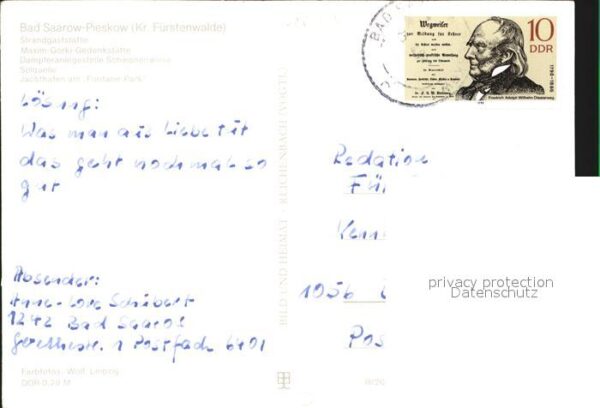 Bad Saarow-Pieskow (Kr. Fürstenwalde)
Strandgaststätte
Maxim-Gorki-Gedenkstätte
Dampferanlegestelle Scharmützelsee
Solquelle
Jachthafen am „Fontane-Park“
Lösung:
Was man aus Liebe tut
das geht nochmal so
gut
Absender:
Anne-Lore Schubert
1242 Bad Saarow
Goethestr. 1 Postfach 6401
Farbfotos: Wolf, Leipzig
DDR 0,20 M
BILD UND HEIMAT · REICHENBACH (VOGTL)
BAD
Wegweiser
zur Bildung für Lehrer
10
DDR
1790-1866
Friedrich Adolph Wilhelm Diesterweg
Redation
Fü
Kenn
1056
Pos
privacy protection
Datenschutz